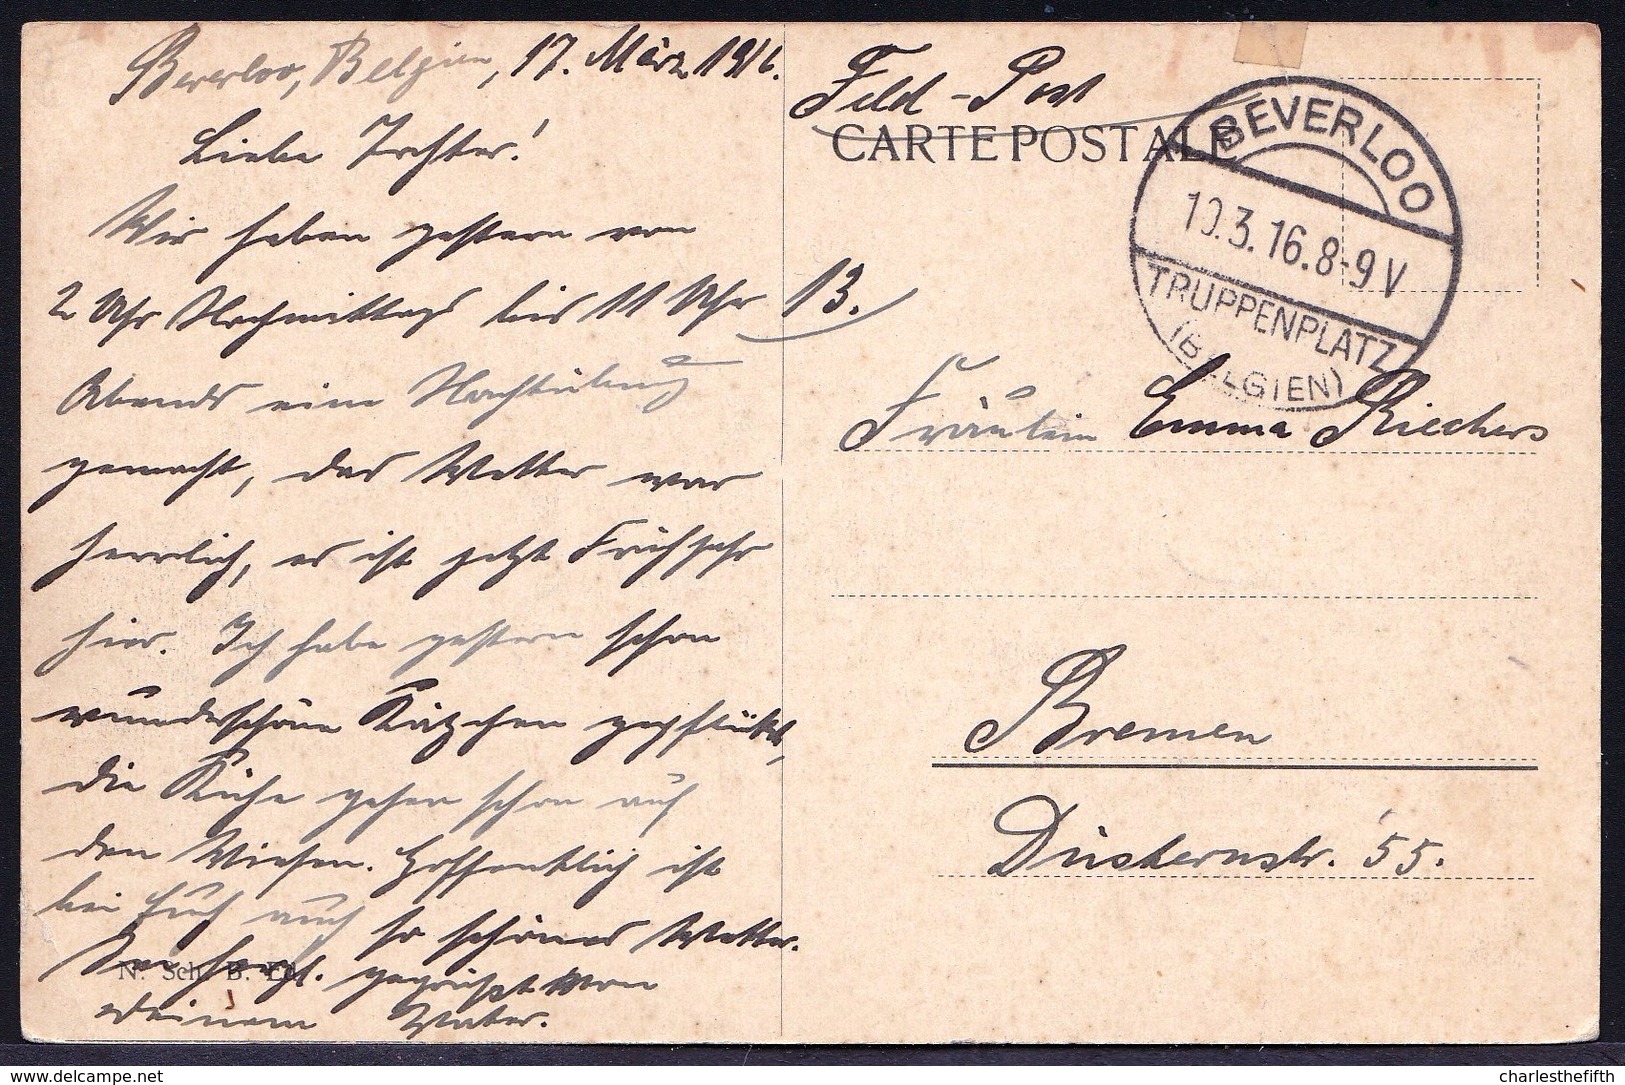 Beverloo, Belgien, 17. März 1916.
Liebe Tochter!
Wir haben gestern von
2 Uhr Nachmittags bis 11 Uhr
Abends eine Nachtübung
gemacht, das Wetter war
herrlich, es ist jetzt Frühjahr
hier. Ich habe gestern schon
wunderschöne Kätzchen gepflückt,
die Kühe gehen schon auf
den Wiesen. Hoffentlich ist
bei Euch auch so schönes Wetter.
Sei herzl. gegrüßt von
Deinem Vater.
N. Sch. B. Ed.
Feld-Post
CARTE POSTALE
BEVERLOO
10.3.16.8-9V
TRUPPENPLATZ
(BELGIEN)
13.
Fräulein Emma Riechers
Bremen
Düsternstr. 55.
charlesthefifth
www.delcampe.net